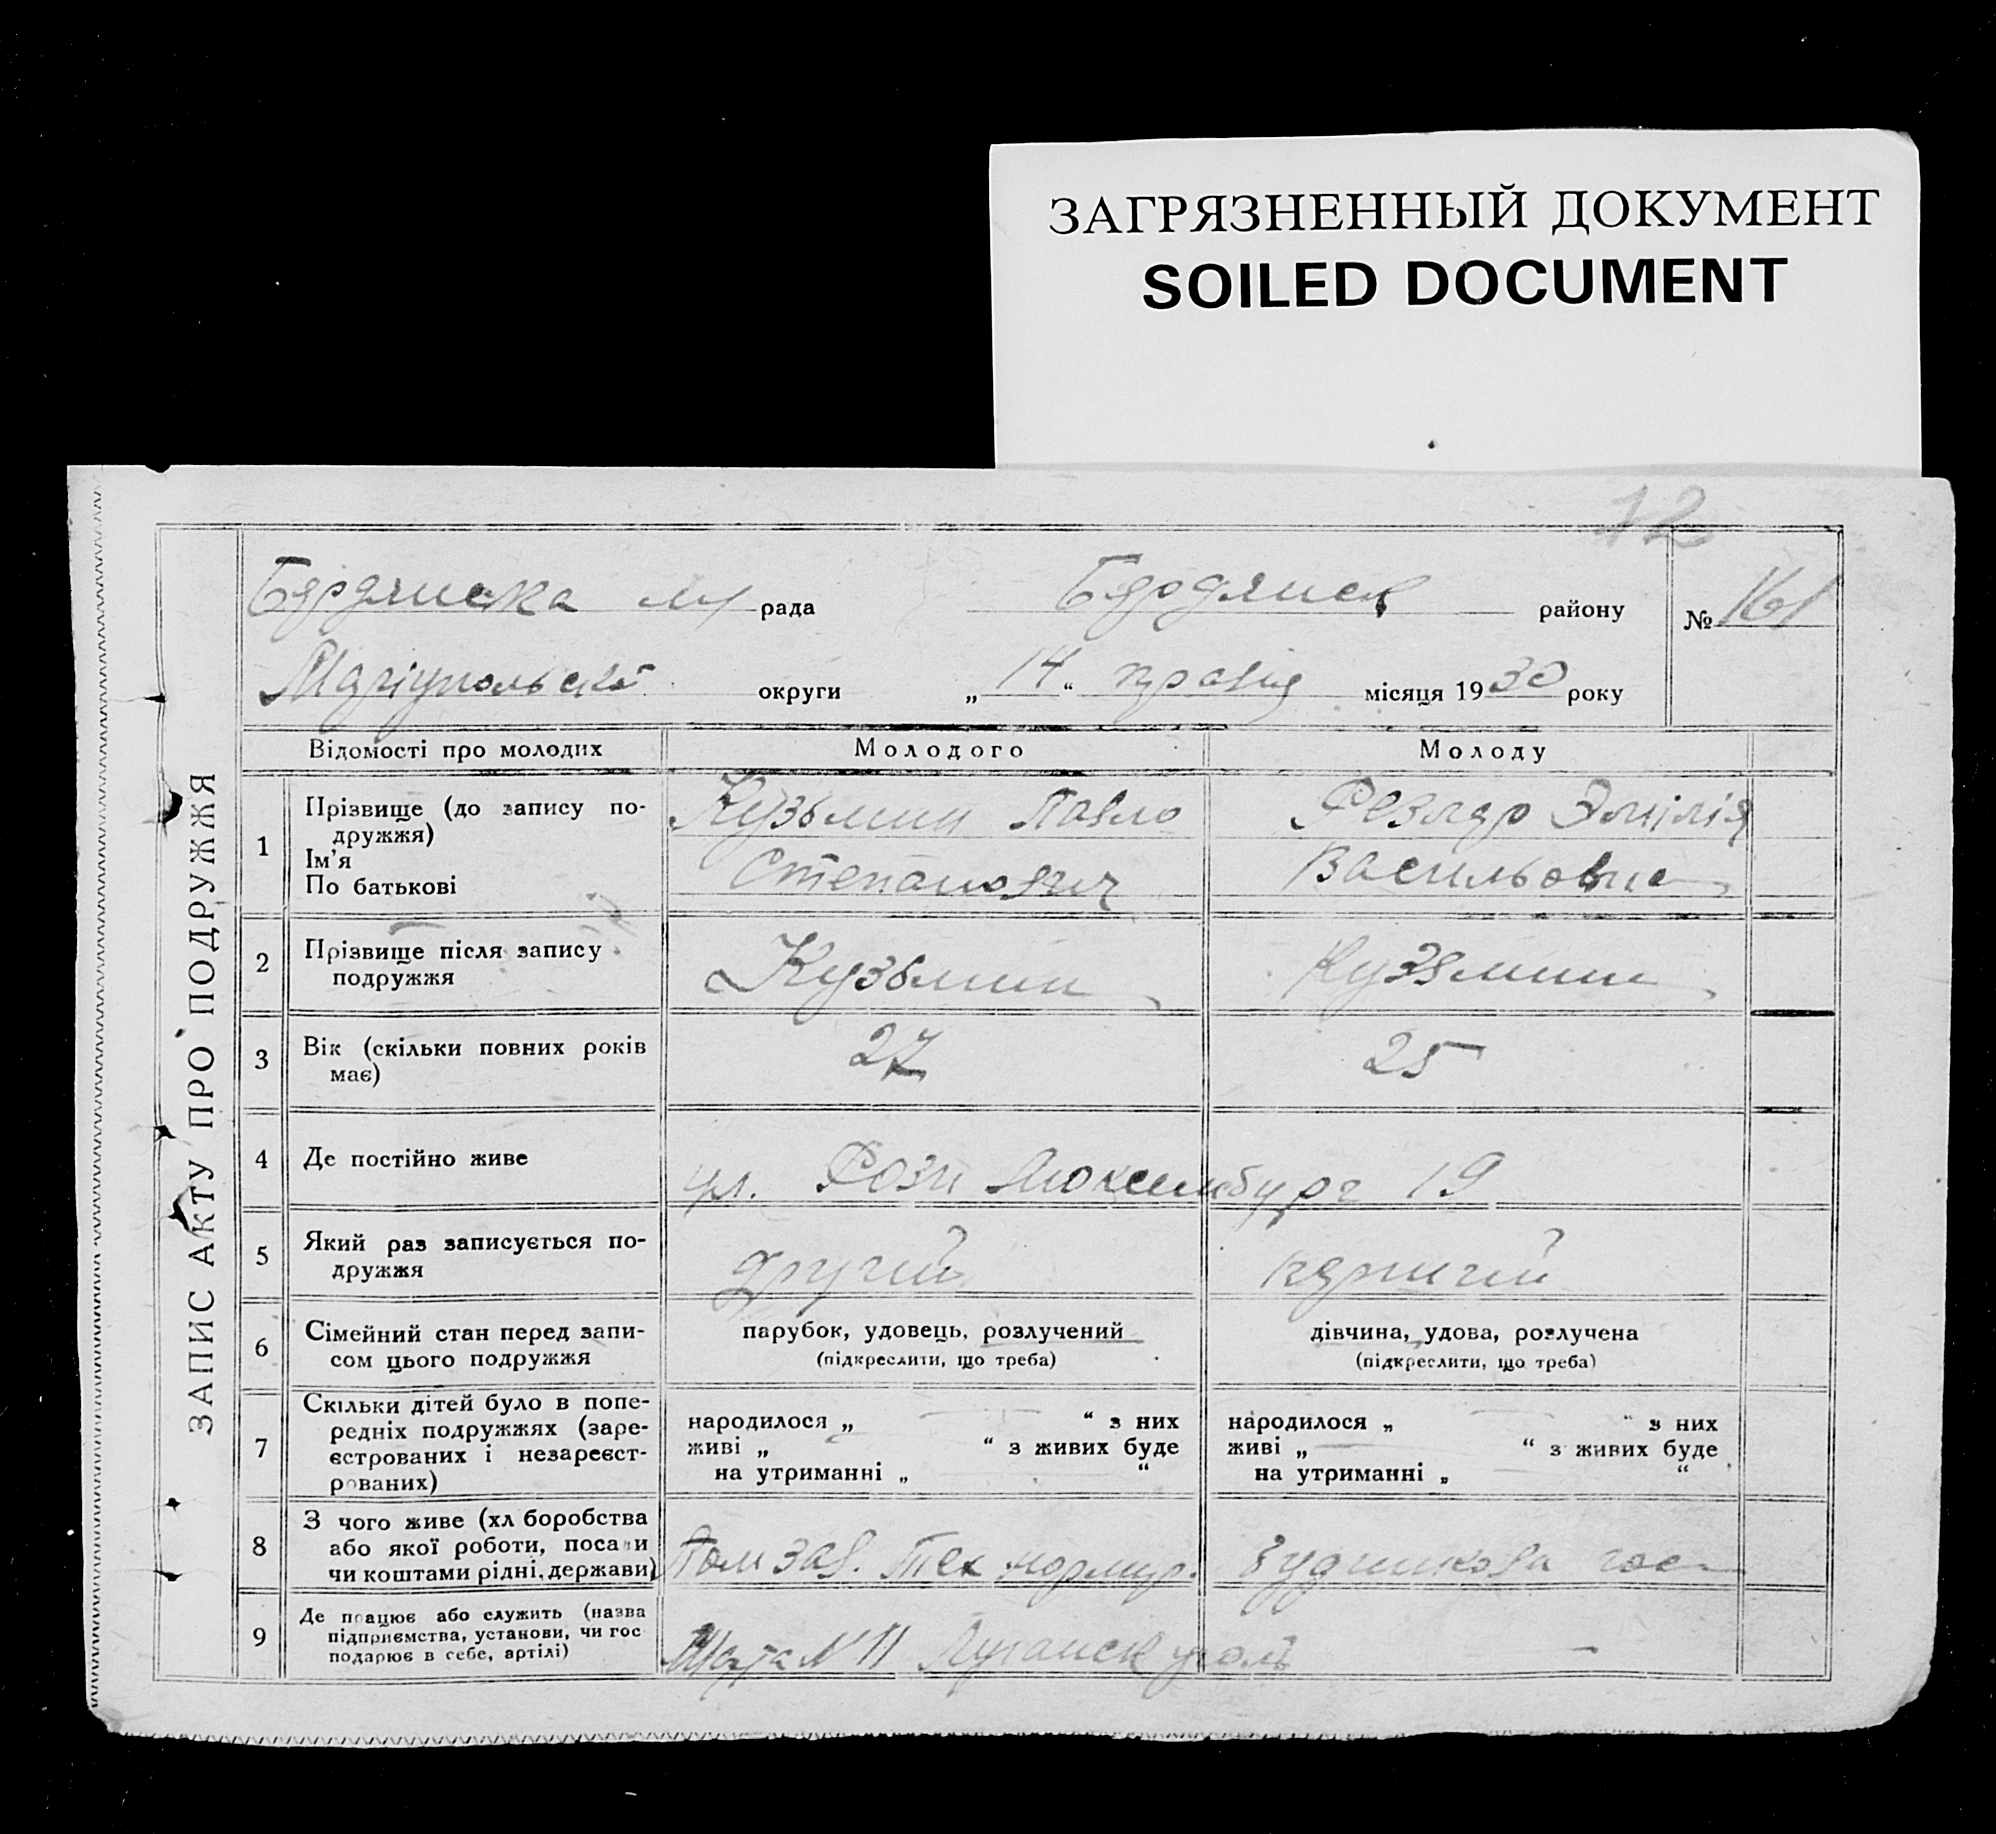 ЗАГРЯЗНЕННЫЙ ДОКУМЕНТ
SOILED DOCUMENT
12
ЗАПИС АКТУ ПРО ПОДРУЖЖЯ
Бердянська рада Бердянськ району № 161
Маріупольскої округи „ 14 “ травня місяця 1930 року
Відомості про молодих Молодого Молоду
1 Прізвище (до запису по-
дружжя)
Ім'я
По батькові
Кузьмин Павло
Степанович
Резлер Эмілія
Васильовна
2 Прізвище після запису
подружжя
Кузьмин Кузьмин
3 Вік (скільки повних років
має)
27 25
4 Де постійно живе
ул. Рози Люксембург 19
5 Який раз записується по-
дружжя
другий перший
6 Сімейний стан перед запи-
сом цього подружжя
парубок, удовець, розлучений
(підкреслити, що треба)
дівчина, удова, розлучена
(підкреслити, що треба)
7 Скільки дітей було в попе-
редніх подружжях (заре-
єстрованих і незареєст-
рованих)
народилося „ — “ з них
живі „ — “ з живих буде
на утриманні „ — “
народилося „ — “ з них
живі „ — “ з живих буде
на утриманні „ — “
8 З чого живе (хл боробства
або якої роботи, посади
чи коштами рідні, держави)
Пом зав. Тех нормир.
9 Де працює або служить (назва
підприємства, установи, чи гос
подарює в себе, артілі)
Шахта № 11 Луганск уголь —